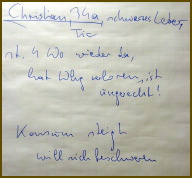 Christian, 34a, schweres Leber,
Tic
st. 4 Wo wieder da,
hat Whg verloren, ist
ungerecht!
Konsum steigt
will sich beschweren